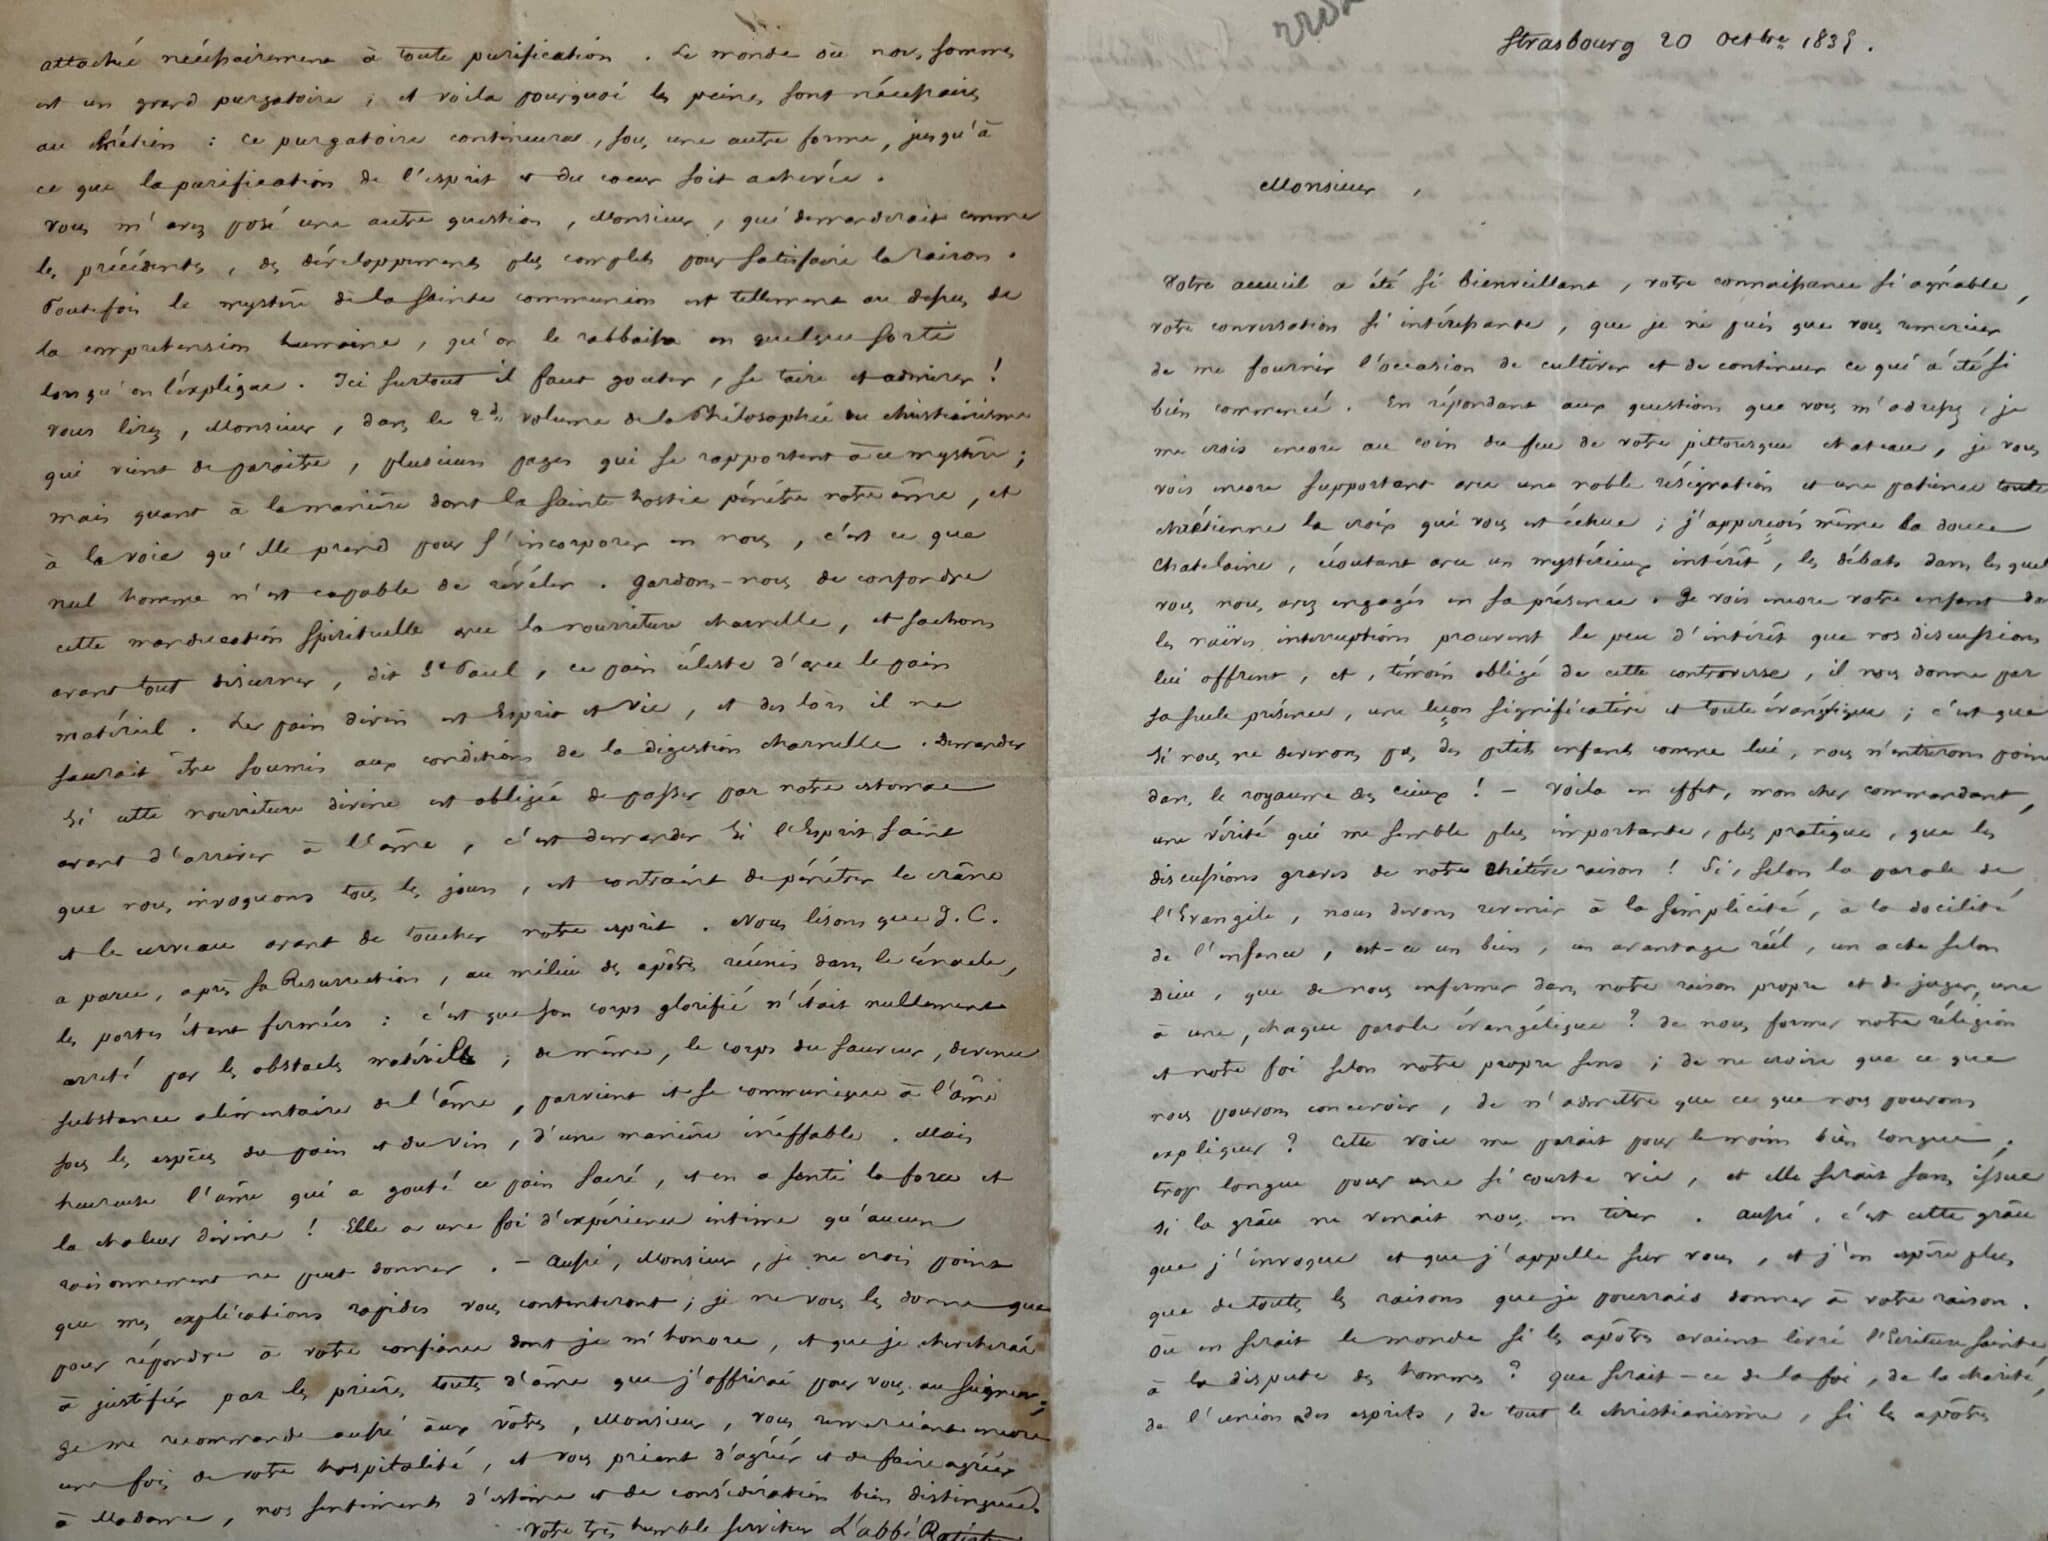 attaché nécéssairement à toute purification . Le monde où nous sommes
est un grand purgatoire ; et voila pourquoi les peines sont nécéssaires
au chrétien : ce purgatoire continuera, sous une autre forme, jusqu'à
ce que la purification de l'esprit et du coeur soit achevée .
vous m'avez posé une autre question, Monsieur, qui demanderait comme
les précédentes, des développements plus complets pour satisfaire la raison .
Toutefois le mystère de la sainte communion est tellement au dessus de
la comprehension humaine, qu'on le rabbaisse en quelque sorte
lorsqu'on l'éxplique . Ici surtout il faut gouter, se taire et admirer !
vous lirez, Monsieur, dans le 2d. volume de la Philosophie du christianisme
qui vient de paraitre, plusieurs pages qui se rapportent à ce mystère ;
mais quant à la manière dont la sainte hostie pénètre notre âme, et
à la voie qu'elle prend pour s'incorporer en nous, c'est ce que
nul homme n'est capable de révéler . gardons-nous de confondre
cette manducation spirituelle avec la nourriture charnelle, et sachons
avant tout discerner, dit St Paul, ce pain céleste d'avec le pain
matériel . Le pain divin est Esprit et Vie, et dès lors il ne
saurait être soumis aux conditions de la digestion charnelle . Demander
si cette nourriture divine est obligée de passer par notre estomac
avant d'arriver à l'âme, c'est demander si l'Esprit saint
que nous invoquons tous les jours, est contraint de pénétrer le crâne
et le cerveau avant de toucher notre esprit . Nous lisons que J. C.
a paru, après sa Resurrection, au milieu des apôtres réunis dans le cénacle,
les portes étant fermées : c'est que son corps glorifié n'était nullement
arreté par les obstacles matériels ; de même, le corps du sauveur, devenu
substance alimentaire de l'âme, parvient et se communique à l'âme
sous les espèces du pain et du vin, d'une manière inéffable . Mais
heureuse l'âme qui a gouté ce pain sacré, et en a senti la force et
la chaleur divine ! Elle a une foi d'expérience intime qu'aucun
raisonnement ne peut donner . – Aussi, Monsieur, je ne crois point
que mes explications rapides vous contenteront ; je ne vous les donne que
pour répondre à votre confiance dont je m'honore, et que je chercherai
à justifier par les prières toutes d'âme que j'offrirai pour vous au seigneur ;
Je me recommande aussi aux vôtres, Monsieur, vous remerciant encore
une fois de votre hospitalité, et vous priant d'agréer et de faire agréer
à Madame, nos sentiments d'estime et de considération bien distinguée.
votre très humble serviteur L'abbé
Strasbourg 20 Octbre 1835 .
Monsieur ,
Votre accueil a été si bienveillant, votre connaissance si agréable,
votre conversation si intéressante, que je ne puis que vous remercier
de me fournir l'occasion de cultiver et de continuer ce qui a été si
bien commencé . En répondant aux questions que vous m'adressez, je
me crois encore au coin du feu de votre pittoresque chateau, je vous
vois encore supportant avec une noble résignation et une patience toute
chrétienne la croix qui vous est échue ; j'apperçois même la douce
chatelaine, écoutant avec un mystérieux intérêt, les débats dans les quels
vous nous avez engagés en sa présence . Je vois encore votre enfant dont
les naïves interruptions prouvent le peu d'intérêt que nos discussions
lui offrent, et, témoin obligé de cette controverse, il nous donne par
sa seule présence, une leçon significative et toute évangélique ; c'est que
si nous ne devenons pas des petits enfants comme lui, nous n'entrerons point
dans le royaume des cieux ! – Voila en effet, mon cher commandant,
une vérité qui me semble plus importante, plus pratique, que les
discussions graves de notre chétive raison ! Si, selon la parole de
l'Evangile, nous devons revenir à la simplicité, à la docilité
de l'enfance, est-ce un bien, un avantage réel, un acte selon
Dieu, que de nous enfermer dans notre raison propre et de juger, une
à une, chaque parole évangélique ? de nous former notre réligion
et notre foi selon notre propre sens ; de ne croire que ce que
nous pouvons concevoir, de n'admettre que ce que nous pouvons
expliquer ? Cette voie me parait pour le moins bien longue ;
trop longue pour une si courte vie, et elle serait sans issue
si la grâce ne venait nous en tirer . Aussi, c'est cette grâce
que j'invoque et que j'appelle sur vous, et j'en espère plus
que de toutes les raisons que je pourrais donner à votre raison .
Où en serait le monde si les apôtres avaient livré l'Ecriture sainte
à la dispute des hommes ? que serait-ce de la foi, de la charité,
de l'union des esprits, de tout le christianisme, si les apôtres